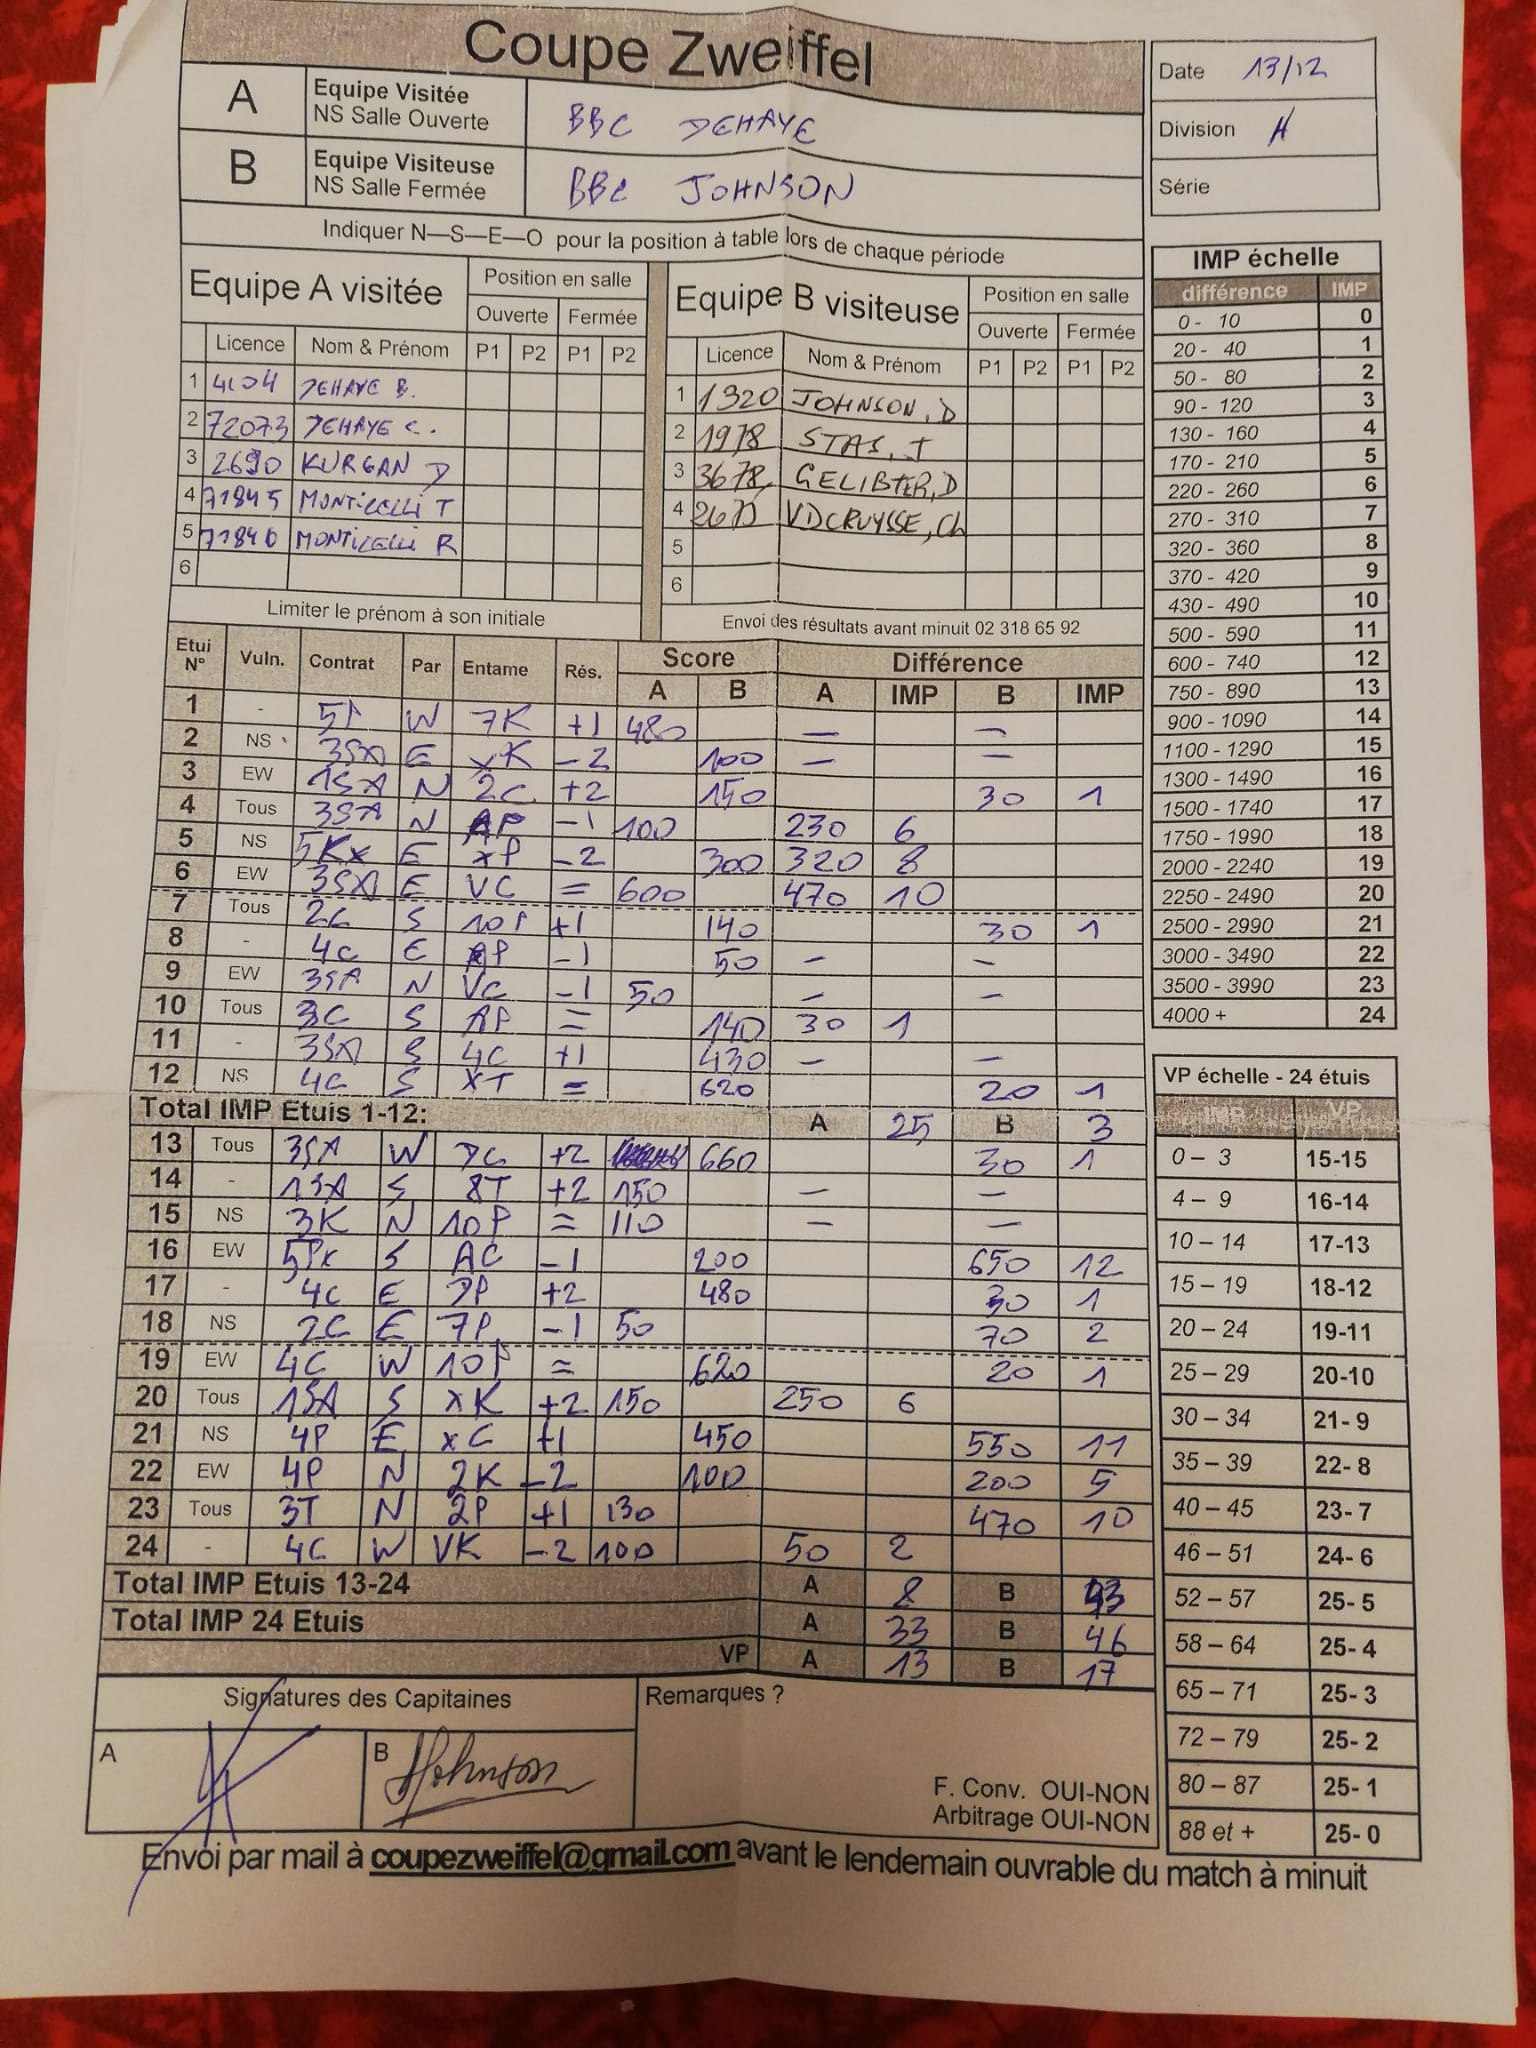 Coupe Zweiffel
A Equipe Visitée NS Salle Ouverte BBC DEHAYE
B Equipe Visiteuse NS Salle Fermée BBC JOHNSON
Date 13/12
Division H
Série
Indiquer N—S—E—O pour la position à table lors de chaque période
Equipe A visitée Position en salle
Ouverte Fermée
Licence Nom & Prénom P1 P2 P1 P2
1 DEHAYE B.
2 72073 DEHAYE C.
3 2690 KURGAN D
4 71845 MONTICELLI T
5 71846 MONTICELLI R
6
Limiter le prénom à son initiale
Equipe B visiteuse Position en salle
Ouverte Fermée
Licence Nom & Prénom P1 P2 P1 P2
1 1320 JOHNSON, D
2 1978 STAS, J
3 3678 GELIBTER, D
4 VDCRUYSSE, Ch
5
6
Envoi des résultats avant minuit 02 318 65 92
Etui N° Vuln. Contrat Par Entame Rés. Score Différence
A B A IMP B IMP
1 - 5P W 7K +1 480 — —
2 NS 3SA E xK -2 100 — —
3 EW 1SA N 2C +2 150 30 1
4 Tous 3SA N AP -1 100 230 6
5 NS 5Kx E xP -2 300 320 8
6 EW 3SA E VC = 600 470 10
7 Tous 2C S 10P +1 140 30 1
8 - 4C E AP -1 50 — —
9 EW 3SA N VC -1 50 — —
10 Tous 3C S AP = 140 30 1
11 - 3SA S 4C +1 430 — —
12 NS 4C S XT = 620 20 1
Total IMP Etuis 1-12: A 25 B 3
13 Tous 3SA W DC +2 660 30 1
14 - 1SA S 8T +2 150 — —
15 NS 3K N 10P = 110 — —
16 EW 5Px S AC -1 200 650 12
17 - 4C E DP +2 480 30 1
18 NS 2C E 7P -1 50 70 2
19 EW 4C W 10P = 620 20 1
20 Tous 1SA S xK +2 150 250 6
21 NS 4P E xC +1 450 550 11
22 EW 4P N 2K -2 100 200 5
23 Tous 3T N 2P +1 130 470 10
24 - 4C W VK -2 100 50 2
Total IMP Etuis 13-24 A 8 B 43
Total IMP 24 Etuis A 33 B 46
VP A 13 B 17
Signatures des Capitaines
A
B Johnson
Remarques ?
F. Conv. OUI-NON
Arbitrage OUI-NON
IMP échelle
différence IMP
0 - 10 0
20 - 40 1
50 - 80 2
90 - 120 3
130 - 160 4
170 - 210 5
220 - 260 6
270 - 310 7
320 - 360 8
370 - 420 9
430 - 490 10
500 - 590 11
600 - 740 12
750 - 890 13
900 - 1090 14
1100 - 1290 15
1300 - 1490 16
1500 - 1740 17
1750 - 1990 18
2000 - 2240 19
2250 - 2490 20
2500 - 2990 21
3000 - 3490 22
3500 - 3990 23
4000 + 24
VP échelle - 24 étuis
IMP VP
0 – 3 15-15
4 – 9 16-14
10 – 14 17-13
15 – 19 18-12
20 – 24 19-11
25 – 29 20-10
30 – 34 21- 9
35 – 39 22- 8
40 – 45 23- 7
46 – 51 24- 6
52 – 57 25- 5
58 – 64 25- 4
65 – 71 25- 3
72 – 79 25- 2
80 – 87 25- 1
88 et + 25- 0
Envoi par mail à coupezweiffel@gmail.com avant le lendemain ouvrable du match à minuit